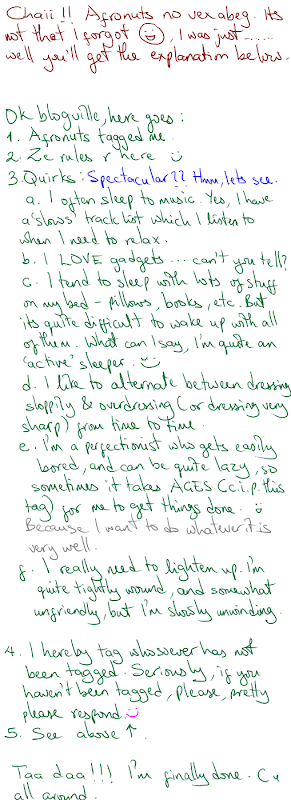 Chaii!! Afronuts no vex abeg. Its
not that I forgot, I was just......
well you'll get the explanation below.
OK blogville, here goes:
1. Afronuts tagged me.
2. Ze rules r here
3. Quirks: Spectacular?? Hmm, lets see.
a. I often sleep to music. Yes, I have
a 'slows' track list which I listen to
when I need to relax.
b. I LOVE gadgets ... can't you tell?
c. I tend to sleep with lots of stuff
on my bed - pillows, books, etc. But
its quite difficult to wake up with all
of them. What can I say, I'm quite an
'active' sleeper.
d. I like to alternate between dressing
sloppily & overdressing (or dressing very
sharp) from time to time.
e. I'm a perfectionist who gets easily
bored, and can be quite lazy, so
sometimes it takes AGES (c.i.p. this
tag) for me to get things done.
Because I want to do whatever it is
very well.
f. I really need to lighten up. I'm
quite tightly wound, and somewhat
unfriendly, but I'm slowly unwinding.
4. I hereby tag whosoever has not
been tagged. Seriously, if you
haven't been tagged, please, pretty
please respond.
5. See above ↑.
Taa daa!!! I'm finally done. C u
all around.